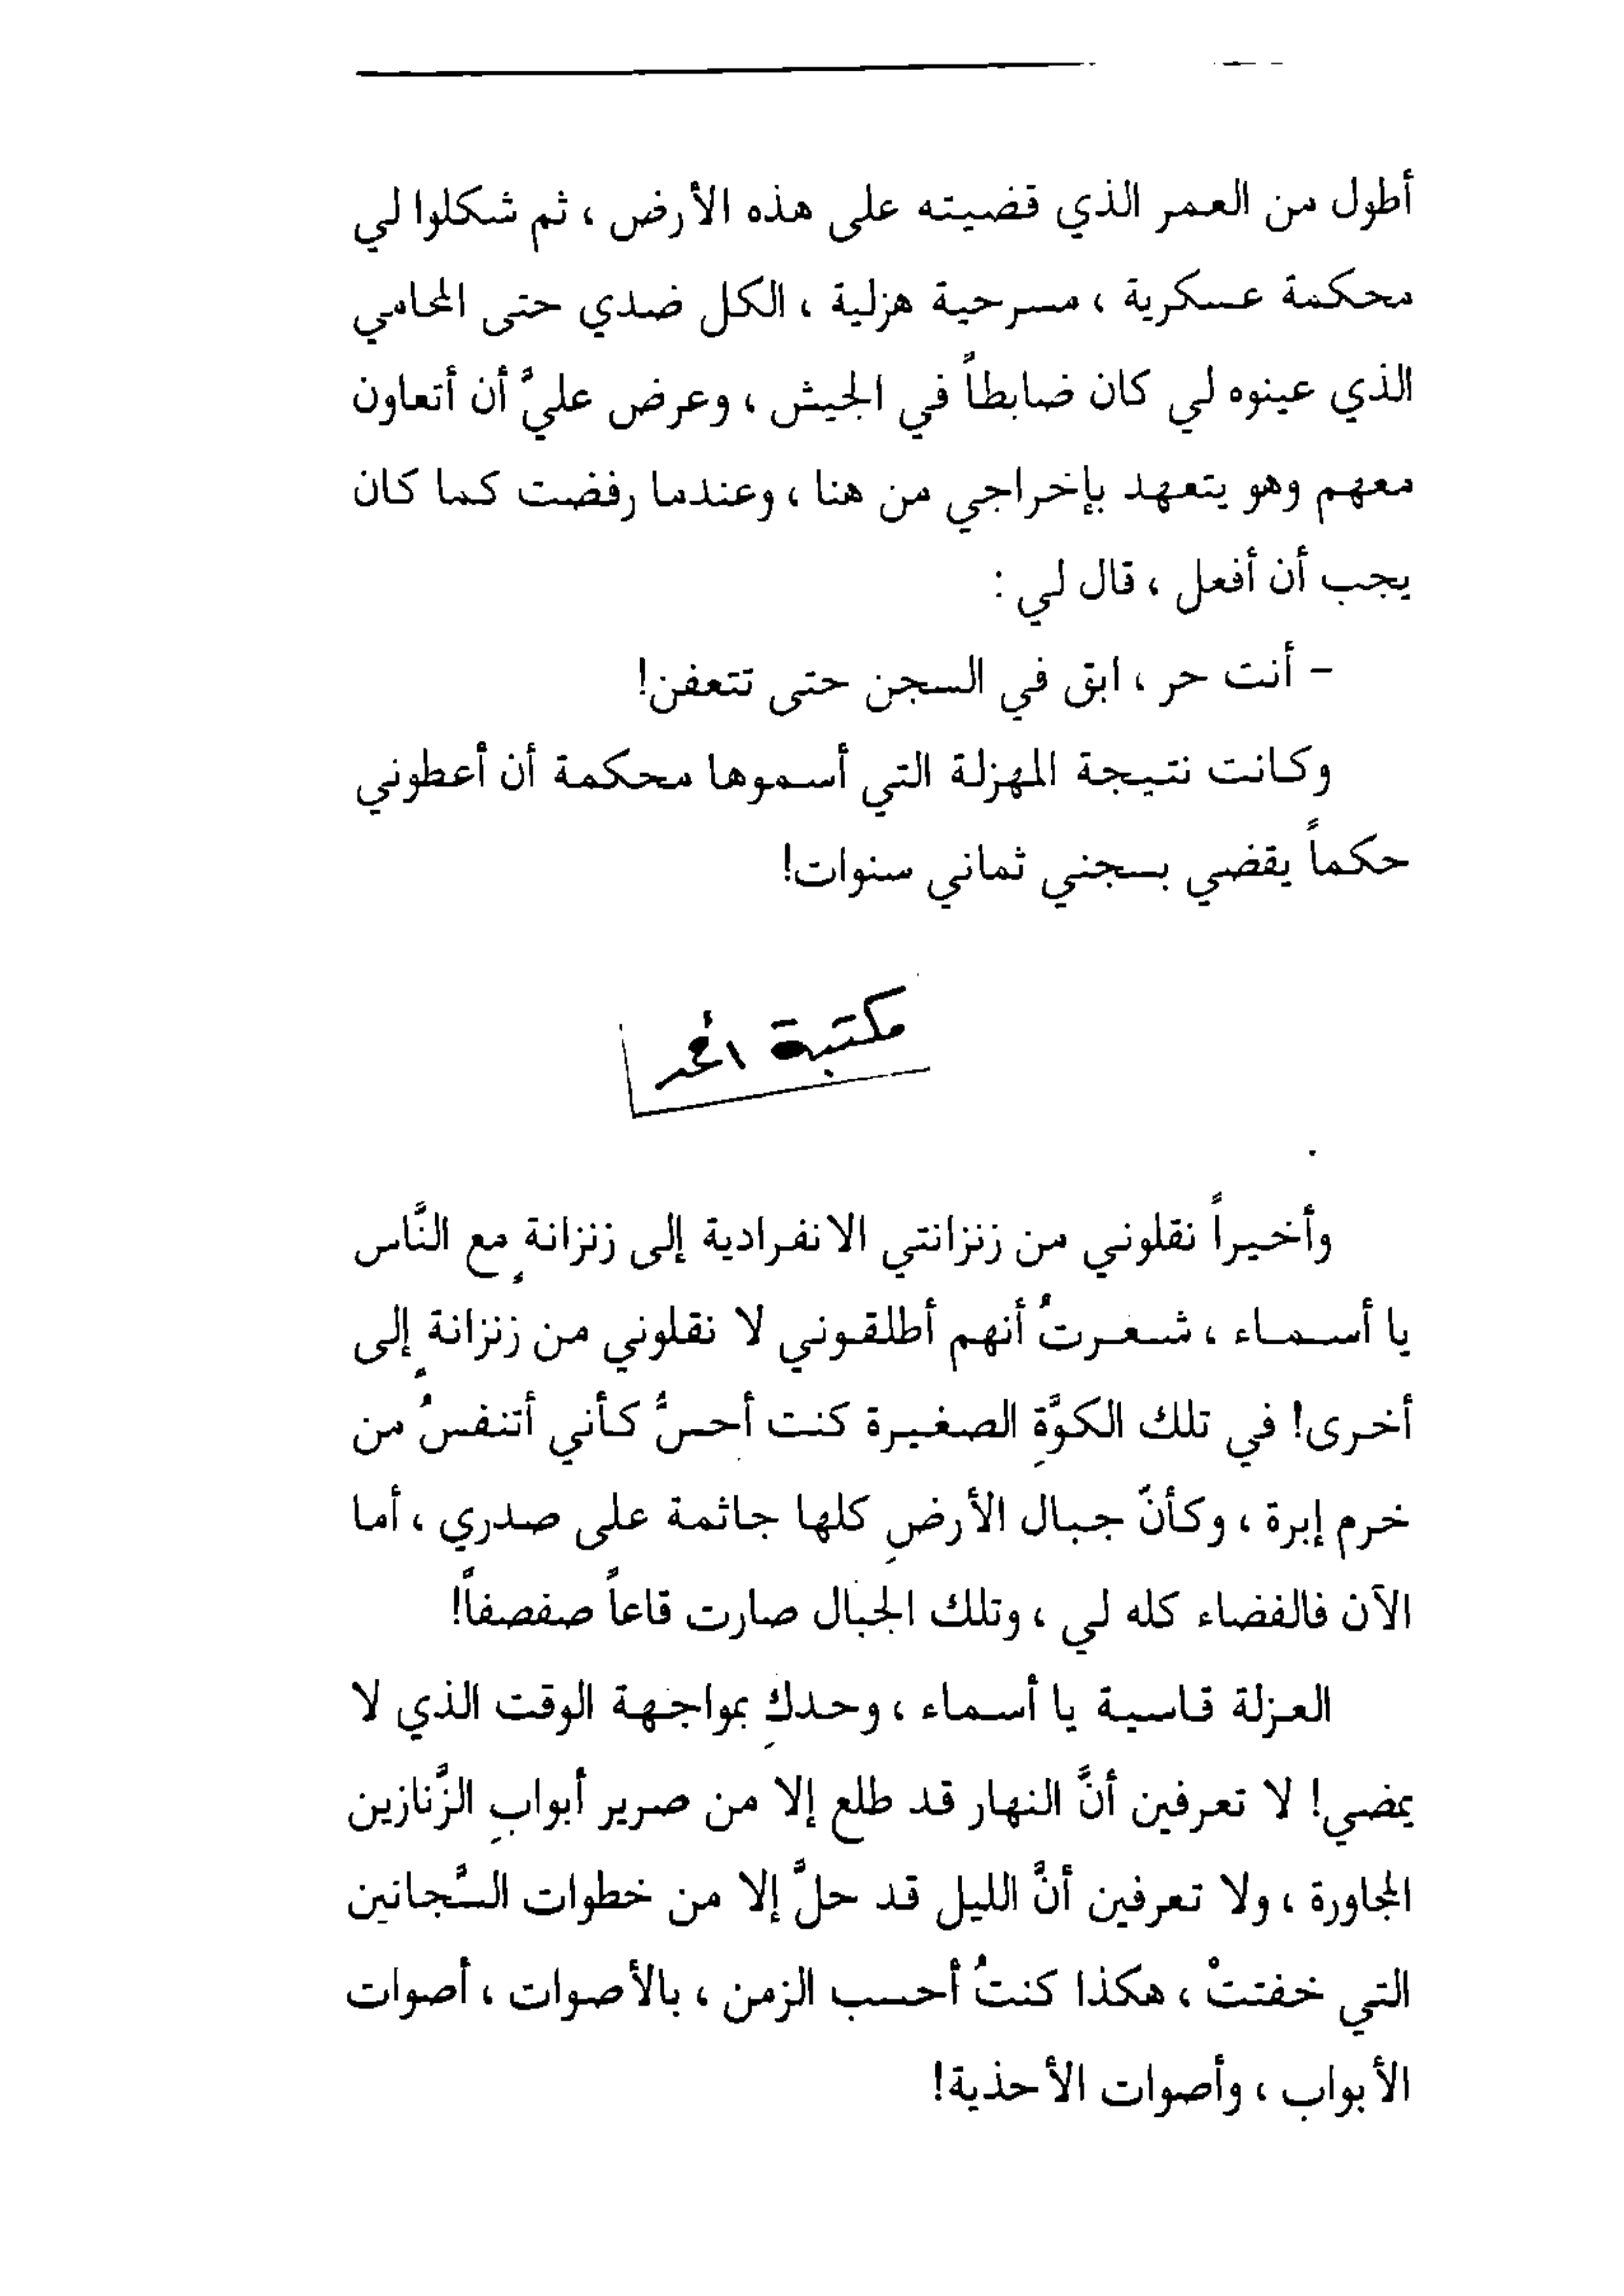 أطول من العمر الذي قضيته على هذه الأرض ، ثم شكلوا لي
محكمة عسكرية ، مسرحية هزلية ، الكل ضدي حتى المحامي
الذي عينوه لي كان ضابطاً في الجيش ، وعرض عليَّ أن أتعاون
معهم وهو يتعهد بإخراجي من هنا ، وعندما رفضت كما كان
يجب أن أفعل ، قال لي :
- أنت حر ، ابق في السجن حتى تتعفن!
وكانت نتيجة المهزلة التي أسموها محكمة أن أعطوني
حكماً يقضي بسجني ثماني سنوات!
مكتبة
وأخيراً نقلوني من زنزانتي الانفرادية إلى زنزانةٍ مع النَّاس
يا أسماء ، شعرتُ أنهم أطلقوني لا نقلوني من زنزانةٍ إلى
أخرى! في تلك الكوَّةِ الصغيرة كنت أحسُّ كأني أتنفسُ من
خرم إبرة ، وكأنّ جبال الأرضِ كلها جاثمة على صدري ، أما
الآن فالفضاء كله لي ، وتلك الجبال صارت قاعاً صفصفاً!
العزلة قاسية يا أسماء ، وحدكِ بمواجهة الوقت الذي لا
يمضي! لا تعرفين أنَّ النهار قد طلع إلا من صرير أبوابِ الزَّنازين
المجاورة ، ولا تعرفين أنَّ الليل قد حلَّ إلا من خطوات السَّجانين
التي خفتتْ ، هكذا كنتُ أحسب الزمن ، بالأصوات ، أصوات
الأبواب ، وأصوات الأحذية!